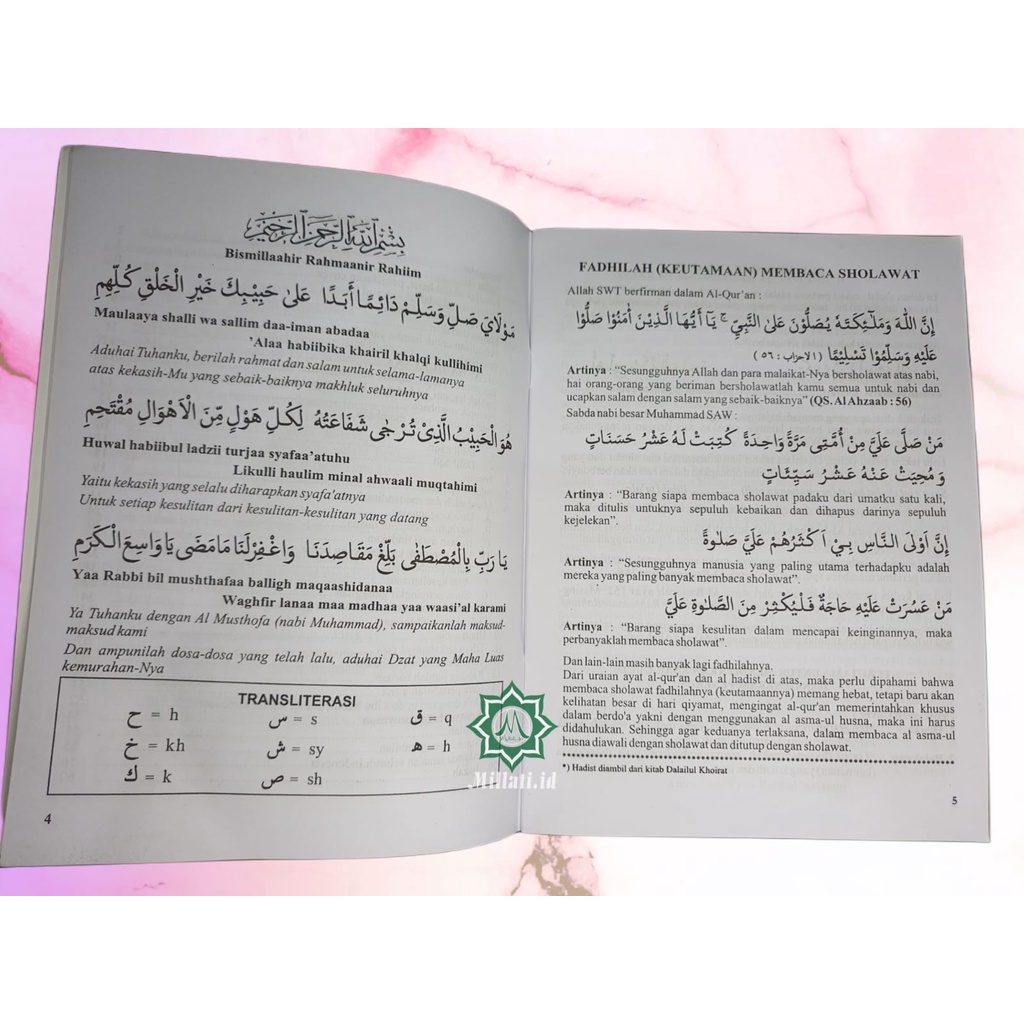 بِسْمِ اللهِ الرَّحْمَنِ الرَّحِيْمِ
Bismillaahir Rahmaanir Rahiim
مَوْلَايَ صَلِّ وَسَلِّمْ دَائِمًا أَبَدًا عَلَى حَبِيْبِكَ خَيْرِ الْخَلْقِ كُلِّهِمِ
Maulaaya shalli wa sallim daa-iman abadaa
'Alaa habiibika khairil khalqi kullihimi
Aduhai Tuhanku, berilah rahmat dan salam untuk selama-lamanya
atas kekasih-Mu yang sebaik-baiknya makhluk seluruhnya
هُوَ الْحَبِيْبُ الَّذِيْ تُرْجَى شَفَاعَتُهُ لِكُلِّ هَوْلٍ مِّنَ الْأَهْوَالِ مُقْتَحِمِ
Huwal habiibul ladzii turjaa syafaa'atuhu
Likulli haulim minal ahwaali muqtahimi
Yaitu kekasih yang selalu diharapkan syafa'atnya
Untuk setiap kesulitan dari kesulitan-kesulitan yang datang
يَا رَبِّ بِالْمُصْطَفَى بَلِّغْ مَقَاصِدَنَا وَاغْفِرْلَنَا مَامَضَى يَاوَاسِعَ الْكَرَمِ
Yaa Rabbi bil mushthafaa balligh maqaashidanaa
Waghfir lanaa maa madhaa yaa waasi'al karami
Ya Tuhanku dengan Al Musthofa (nabi Muhammad), sampaikanlah maksud-
maksud kami
Dan ampunilah dosa-dosa yang telah lalu, aduhai Dzat yang Maha Luas
kemurahan-Nya
TRANSLITERASI
ح = h س = s ق = q
خ = kh ش = sy ه = h
ك = k ص = sh
4
FADHILAH (KEUTAMAAN) MEMBACA SHOLAWAT
Allah SWT berfirman dalam Al-Qur'an :
إِنَّ اللهَ وَمَلَٰٓئِكَتَهُ يُصَلُّوْنَ عَلَى النَّبِيِّ ۚ يَآ أَيُّهَا الَّذِيْنَ اٰمَنُوْا صَلُّوْا
عَلَيْهِ وَسَلِّمُوْا تَسْلِيْمًا (الاحزاب : ٥٦)
Artinya : "Sesungguhnya Allah dan para malaikat-Nya bersholawat atas nabi,
hai orang-orang yang beriman bersholawatlah kamu semua untuk nabi dan
ucapkan salam dengan salam yang sebaik-baiknya" (QS. Al Ahzaab : 56)
Sabda nabi besar Muhammad SAW :
مَنْ صَلَّى عَلَيَّ مِنْ أُمَّتِى مَرَّةً وَاحِدَةً كُتِبَتْ لَهُ عَشْرُ حَسَنَاتٍ
وَمُحِيَتْ عَنْهُ عَشْرُ سَيِّئَاتٍ
Artinya : "Barang siapa membaca sholawat padaku dari umatku satu kali,
maka ditulis untuknya sepuluh kebaikan dan dihapus darinya sepuluh
kejelekan".
إِنَّ أَوْلَى النَّاسِ بِيْ اَكْثَرُهُمْ عَلَيَّ صَلَوٰةً
Artinya : "Sesungguhnya manusia yang paling utama terhadapku adalah
mereka yang paling banyak membaca sholawat".
مَنْ عَسُرَتْ عَلَيْهِ حَاجَةٌ فَلْيُكْثِرْ مِنَ الصَّلٰوةِ عَلَيَّ
Artinya : "Barang siapa kesulitan dalam mencapai keinginannya, maka
perbanyaklah membaca sholawat".
Dan lain-lain masih banyak lagi fadhilahnya.
Dari uraian ayat al-qur'an dan al hadist di atas, maka perlu dipahami bahwa
membaca sholawat fadhilahnya (keutamaannya) memang hebat, tetapi baru akan
kelihatan besar di hari qiyamat, mengingat al-qur'an memerintahkan khusus
dalam berdo'a yakni dengan menggunakan al asma-ul husna, maka ini harus
didahulukan. Sehingga agar keduanya terlaksana, dalam membaca al asma-ul
husna diawali dengan sholawat dan ditutup dengan sholawat.
*) Hadist diambil dari kitab Dalailul Khoirat
5
Millati.id